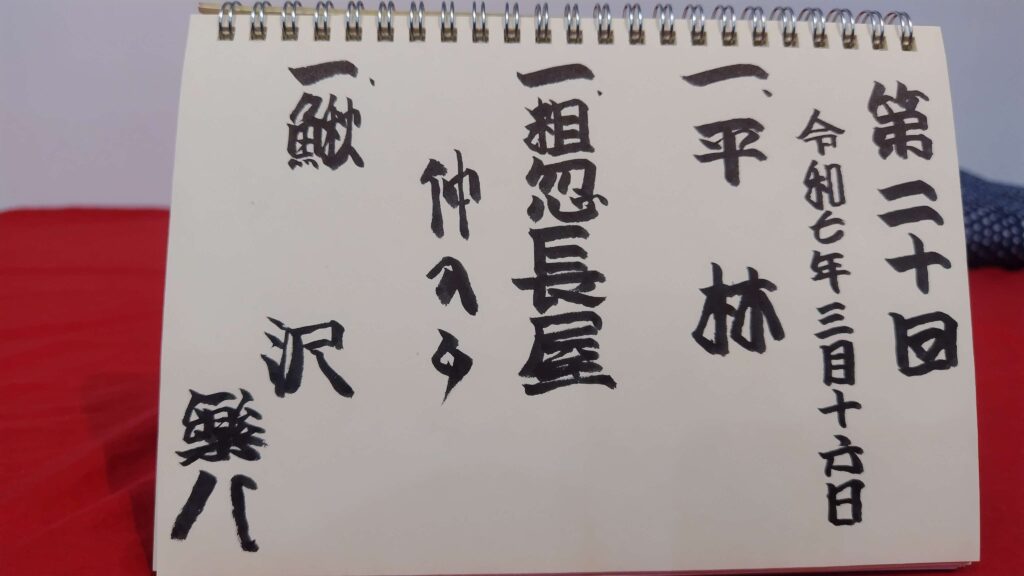 第二十回
令和七年三月十六日
一、平林
一、粗忽長屋
仲入り
一、鰍沢
樂八